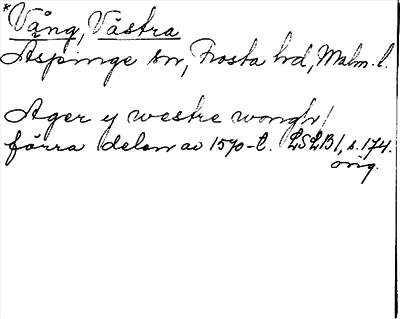 *Vång, Västra
Äspinge sn, Frosta hd, Malm. l.
Ager y westre wongh /
förra delen av 1570-t. LSLB 1, s. 174.
orig.